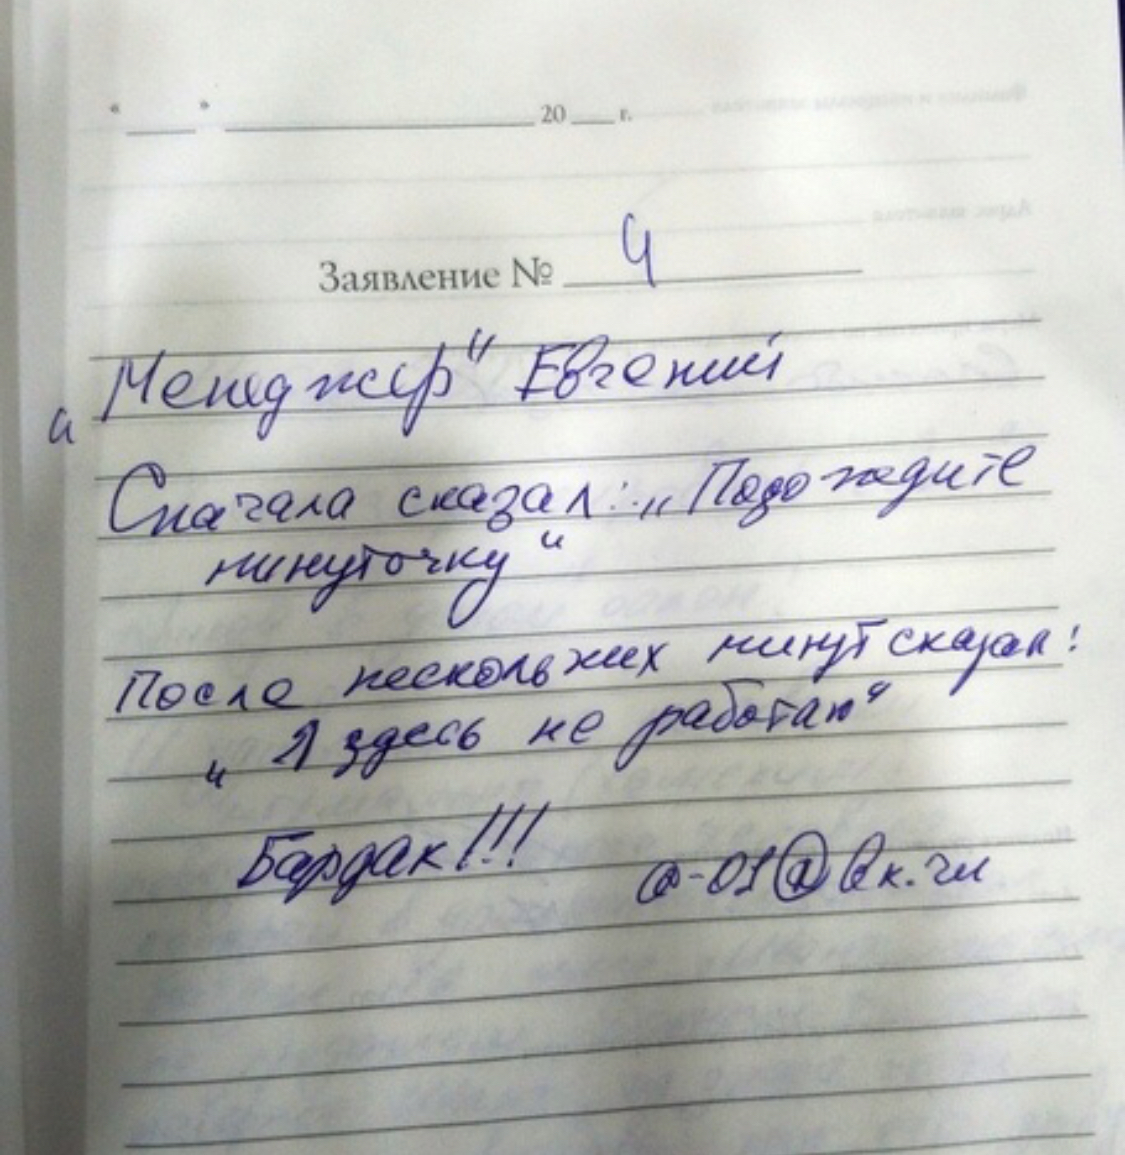 « » 20 г.
Заявление № 4
„Менеджер“ Евгений
Сначала сказал: „Подождите
минуточку“
После нескольких минут сказал:
„Я здесь не работаю“
Бардак!!!